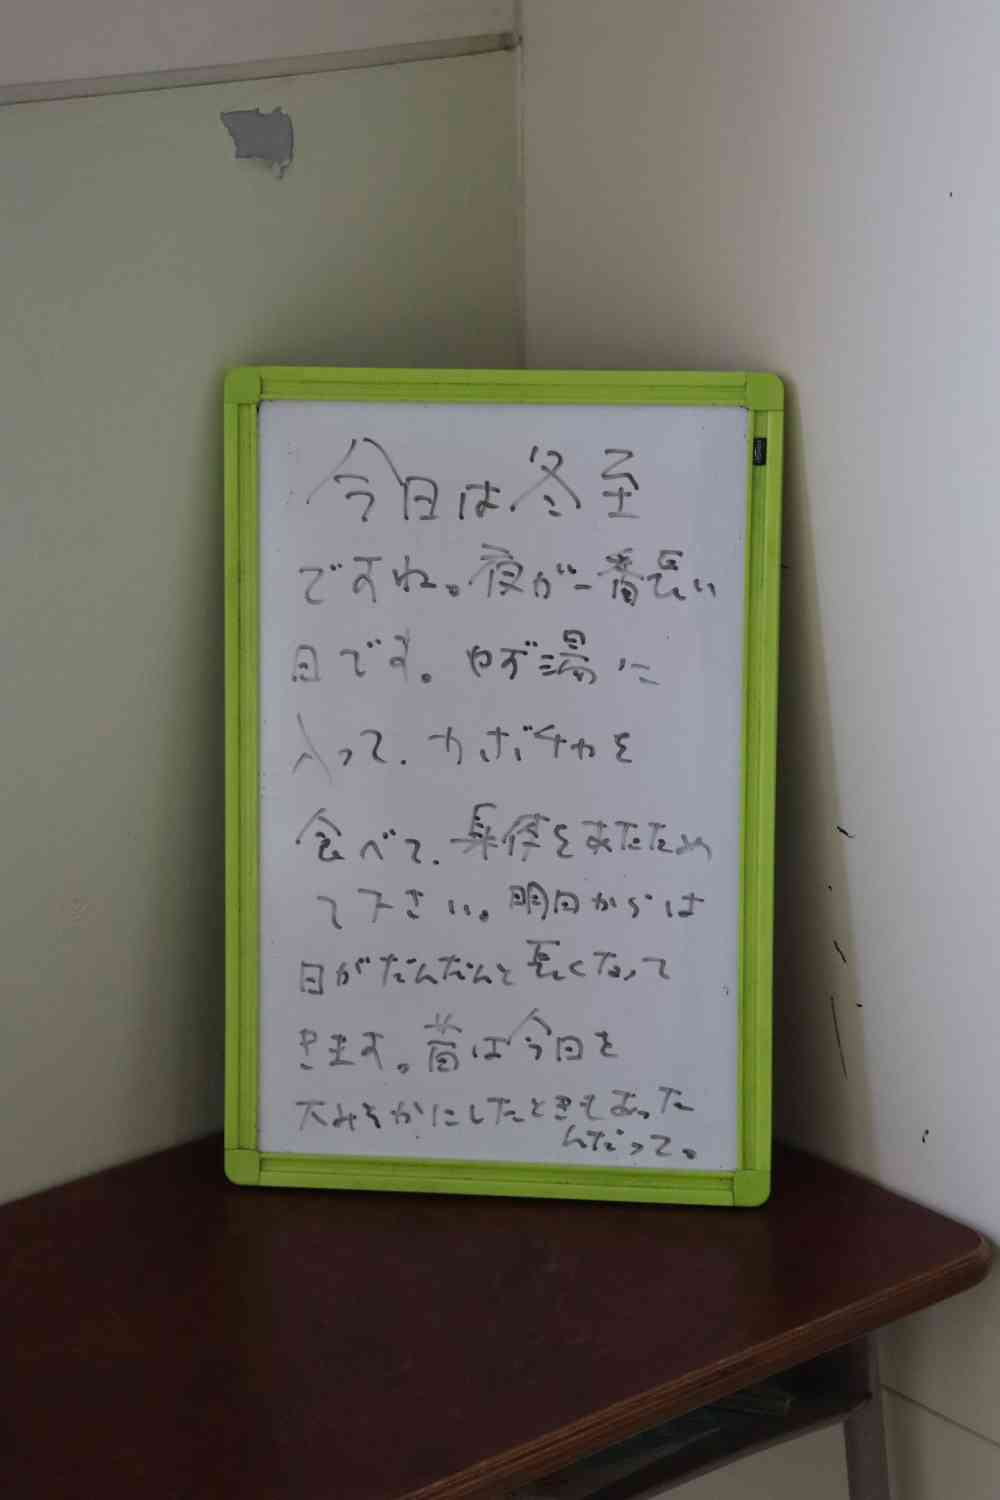 今日は冬至
ですね。夜が一番長い
日です。ゆず湯に
入って、カボチャを
食べて、身体をあたため
て下さい。明日からは
日がだんだんと長くなって
きます。昔は今日を
大みそかにしたときもあった
んだって。